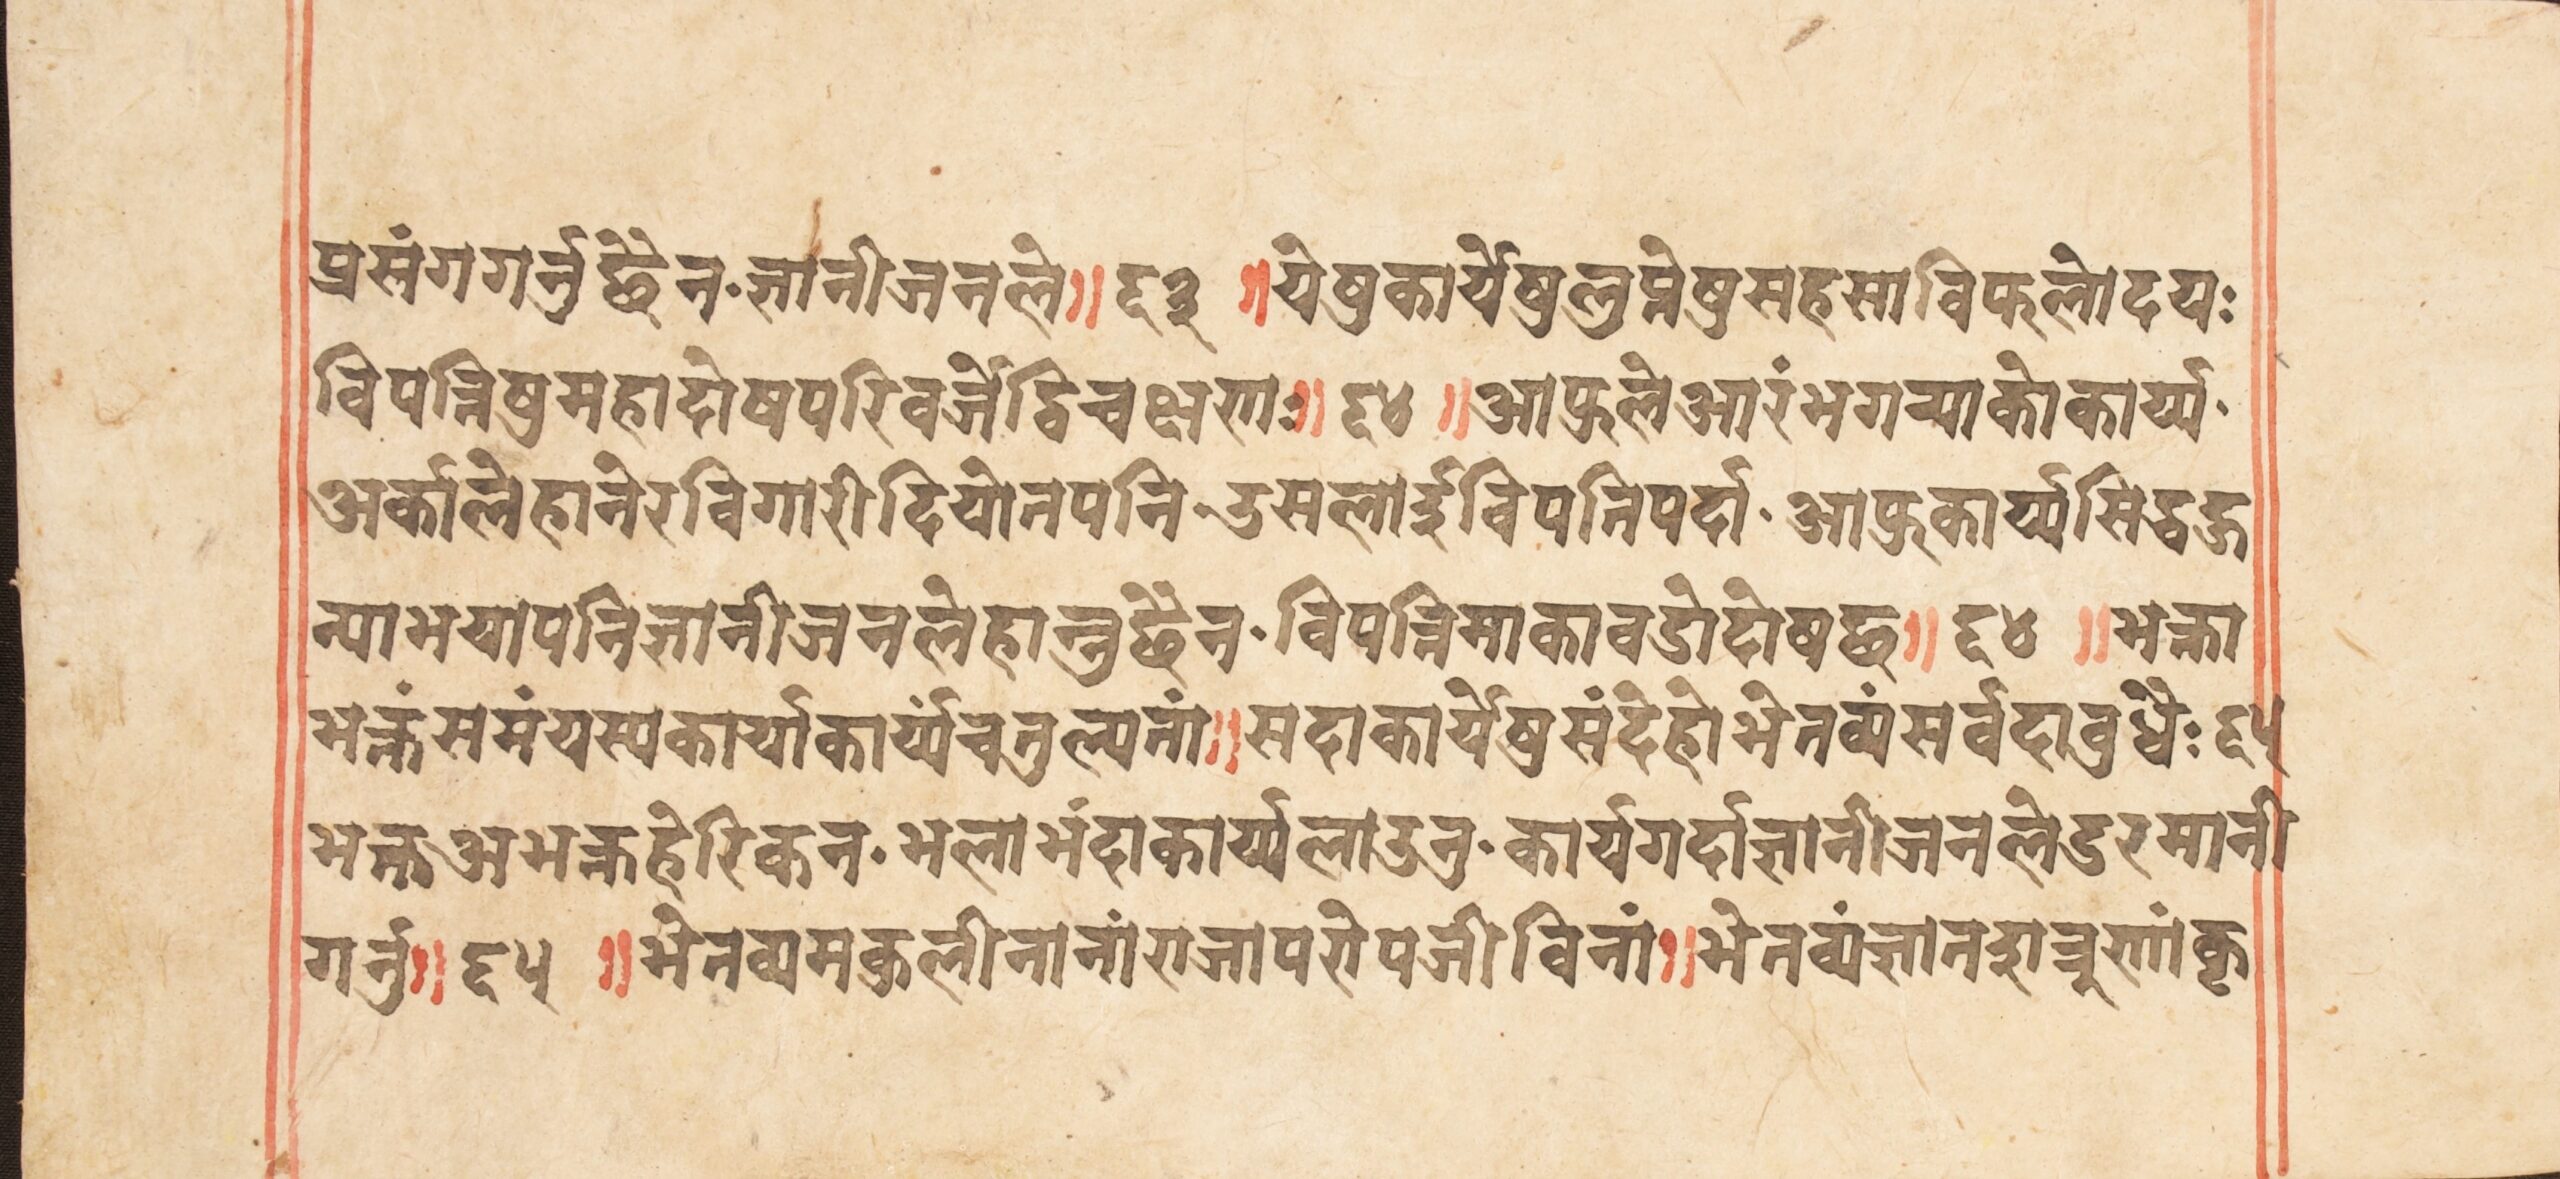 प्रसंगगर्नुछैन.ज्ञानीजनले॥ ६३ ॥येषुकार्येषुलुप्तेषुसहसाविफलोदयः
विपत्तिषुमहादोषपरिवर्जेद्विचक्षणः॥ ६४ ॥आफुलेआरंभगर्‍याकोकार्य्य.
अर्काले‌हानेरविगारीदियोनपनि.उसलाईविपत्तिपर्दा.आफुकार्य्यसिद्धहु
न्याभयापनिज्ञानीजनलेहान्नुछैन.विपत्तिमाकावडोदोषछ॥ ६४ ॥भक्ता
भक्तंसमंयस्यकार्याकार्य्यंचतुल्यतां॥सदाकार्येषुसंदेहोभेतव्यंसर्वदाबुधैः ६५
भक्तअभक्तहेरिकन.भलाभंदाकार्य्यलाउनु.कार्यगर्दाज्ञानीजनलेडरमानी
गर्नु॥ ६५ ॥भेतव्यमकुलीनानांराजापरोपजीविनां॥भेतव्यंज्ञानशत्रूणांकृ